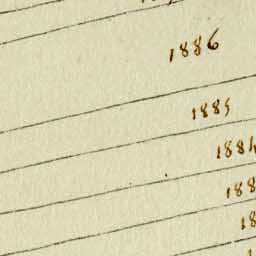 1886
1885
1884
188
18